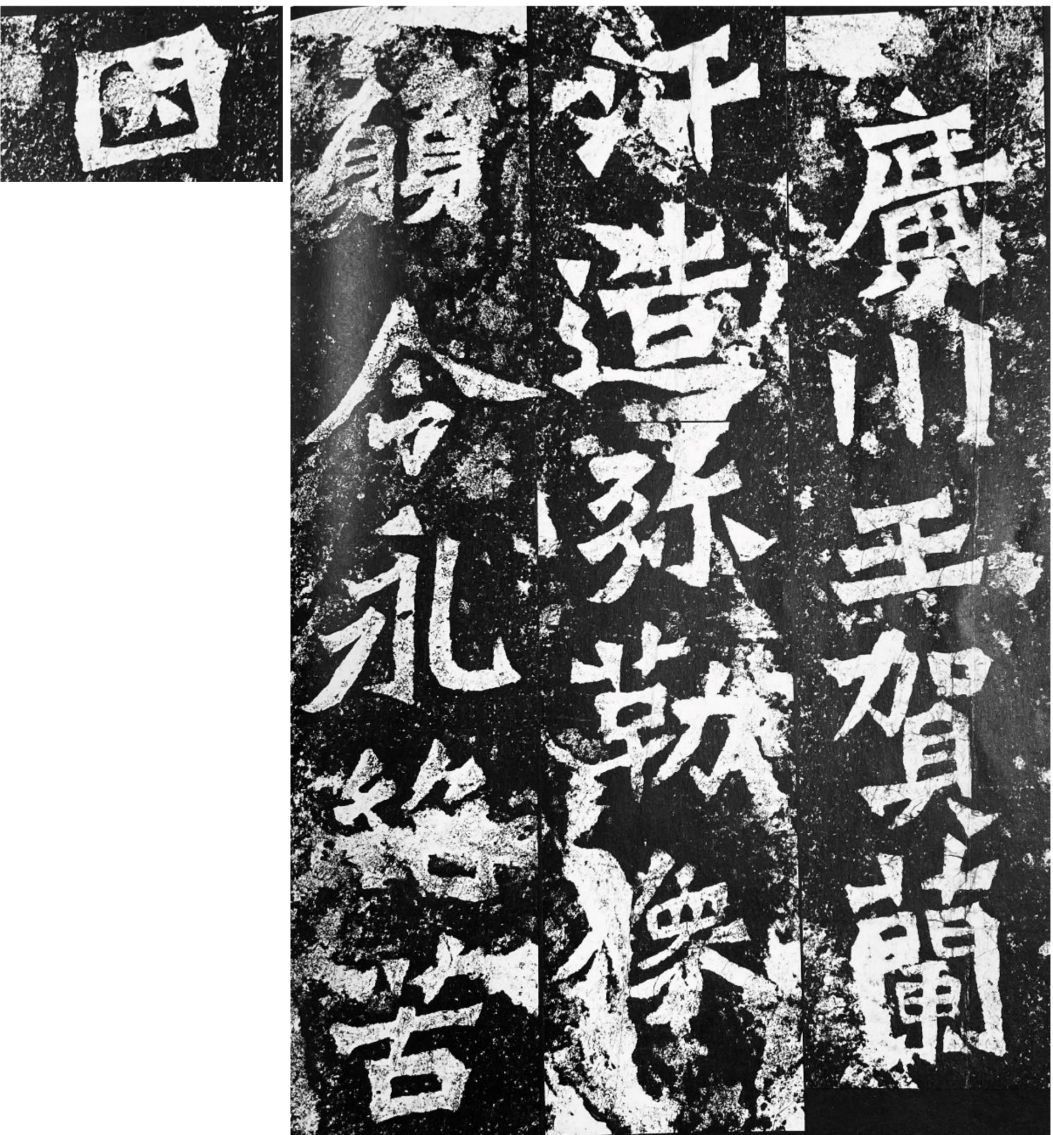 廣川王賀蘭
汗造弥勒像
願令永絕苦
因